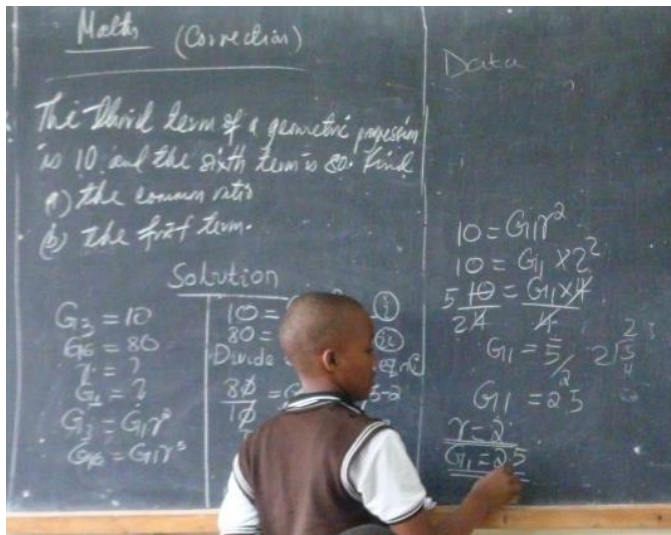 Maths (Correction)
The third term of a geometric progression
is 10 and the sixth term is 80. Find
a) the common ratio
(b) the first term.
Solution
G3 = 10
G6 = 80
r = ?
G1 = ?
G3 = G1r²
G6 = G1r⁵
10 =
80 =
Divide
80
10
Data
10 = G1r²
10 = G1 × 2²
5 10 = G1 × 4
2 4 4
G1 = 5/2
G1 = 2.5
r = 2
G1 = 2.5